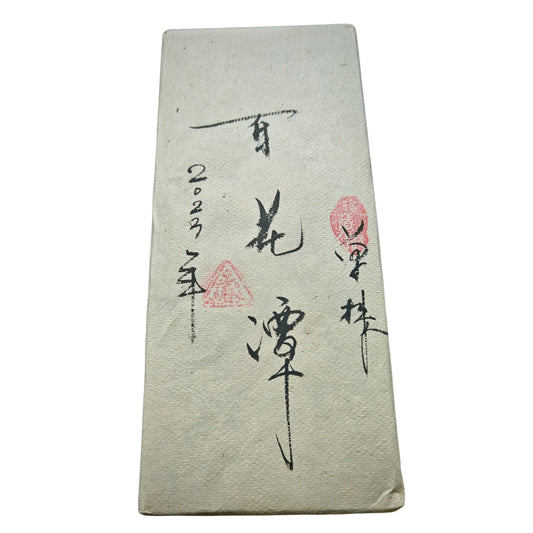 单株
百花潭
2023年